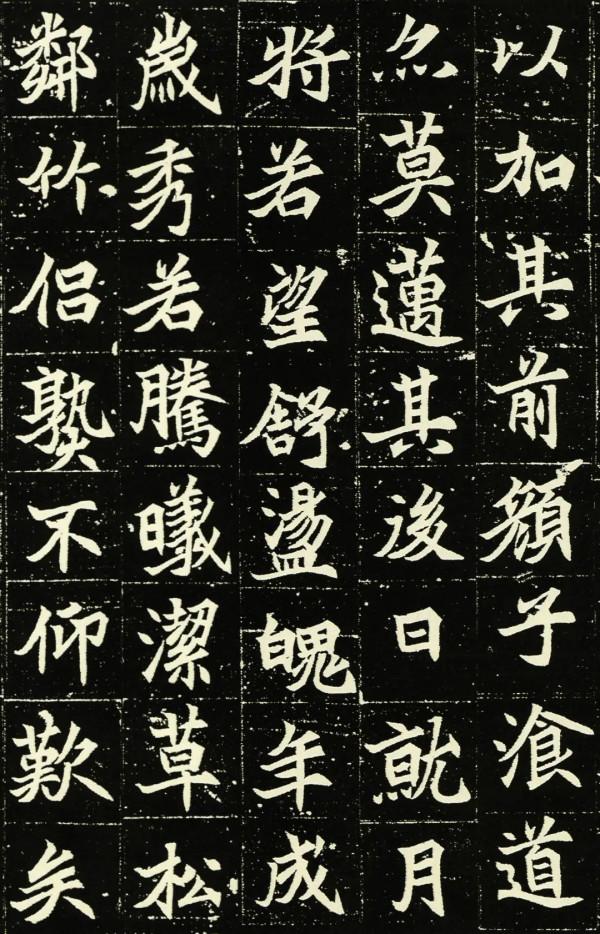 以加其前顏子湌道
亦莫邁其後日就月
將若望舒盪魄年成
歲秀若騰曦潔草松
鄰竹侶孰不仰歎矣